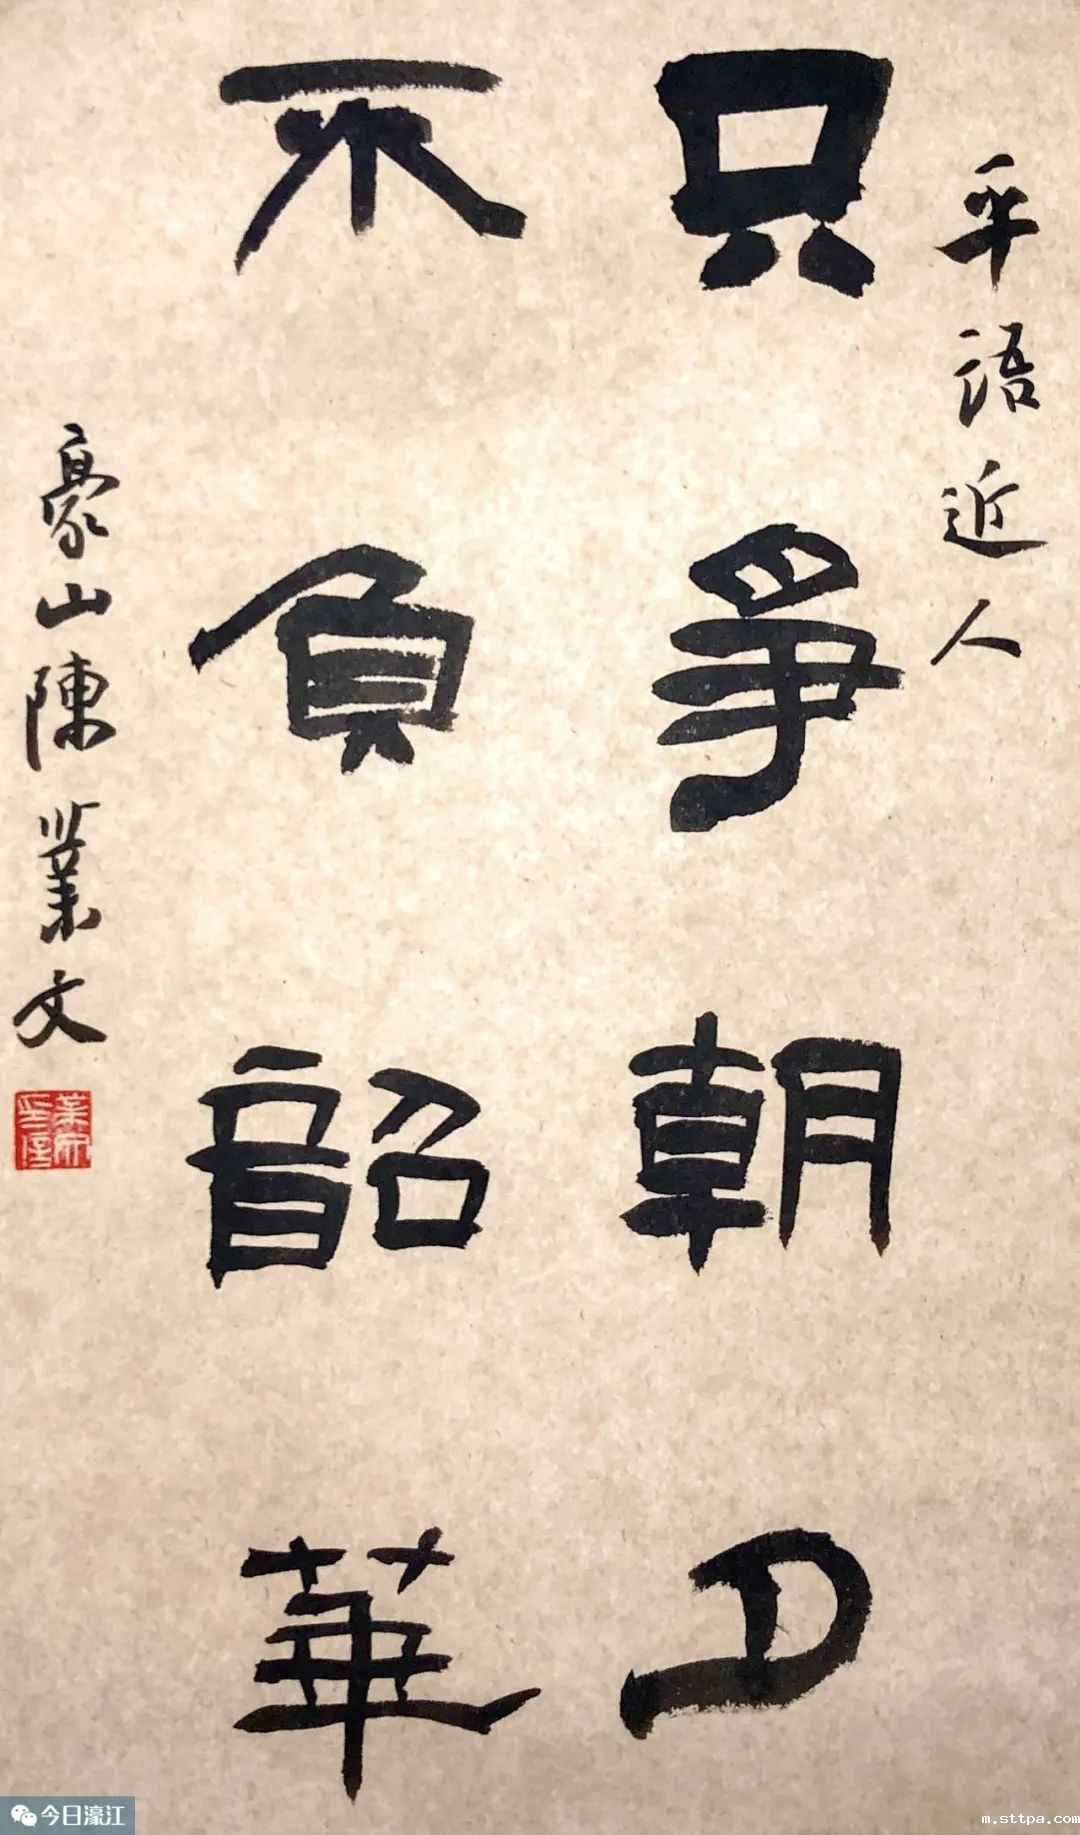 平语近人
只爭朝夕
不負韶華
豪山陳業文
今日濠江
m.sttpa.com